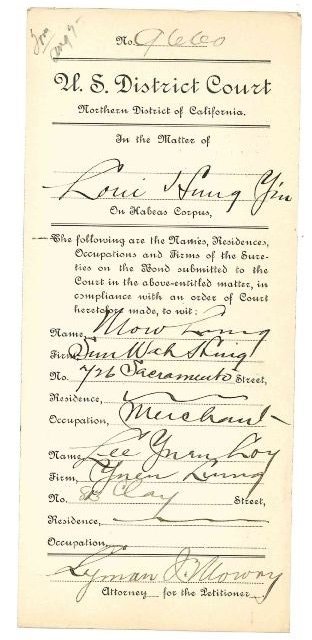 No. 9660
U. S. District Court
Northern District of California.
In the Matter of
Loui Hung Yin
On Habeas Corpus,
The following are the Names, Residences,
Occupations and Firms of the Sure-
ties on the Bond submitted to the
Court in the above-entitled matter, in
compliance with an order of Court
heretofore made, to wit:
Name, Mow Lung
Firm, Sun Wah Shing
No. 726 Sacramento Street,
Residence,
Occupation, Merchant
Name, Lee Yuen Loy
Firm, Yuen Lung
No. Clay Street,
Residence,
Occupation,
Lyman I. Mowry
Attorney for the Petitioner